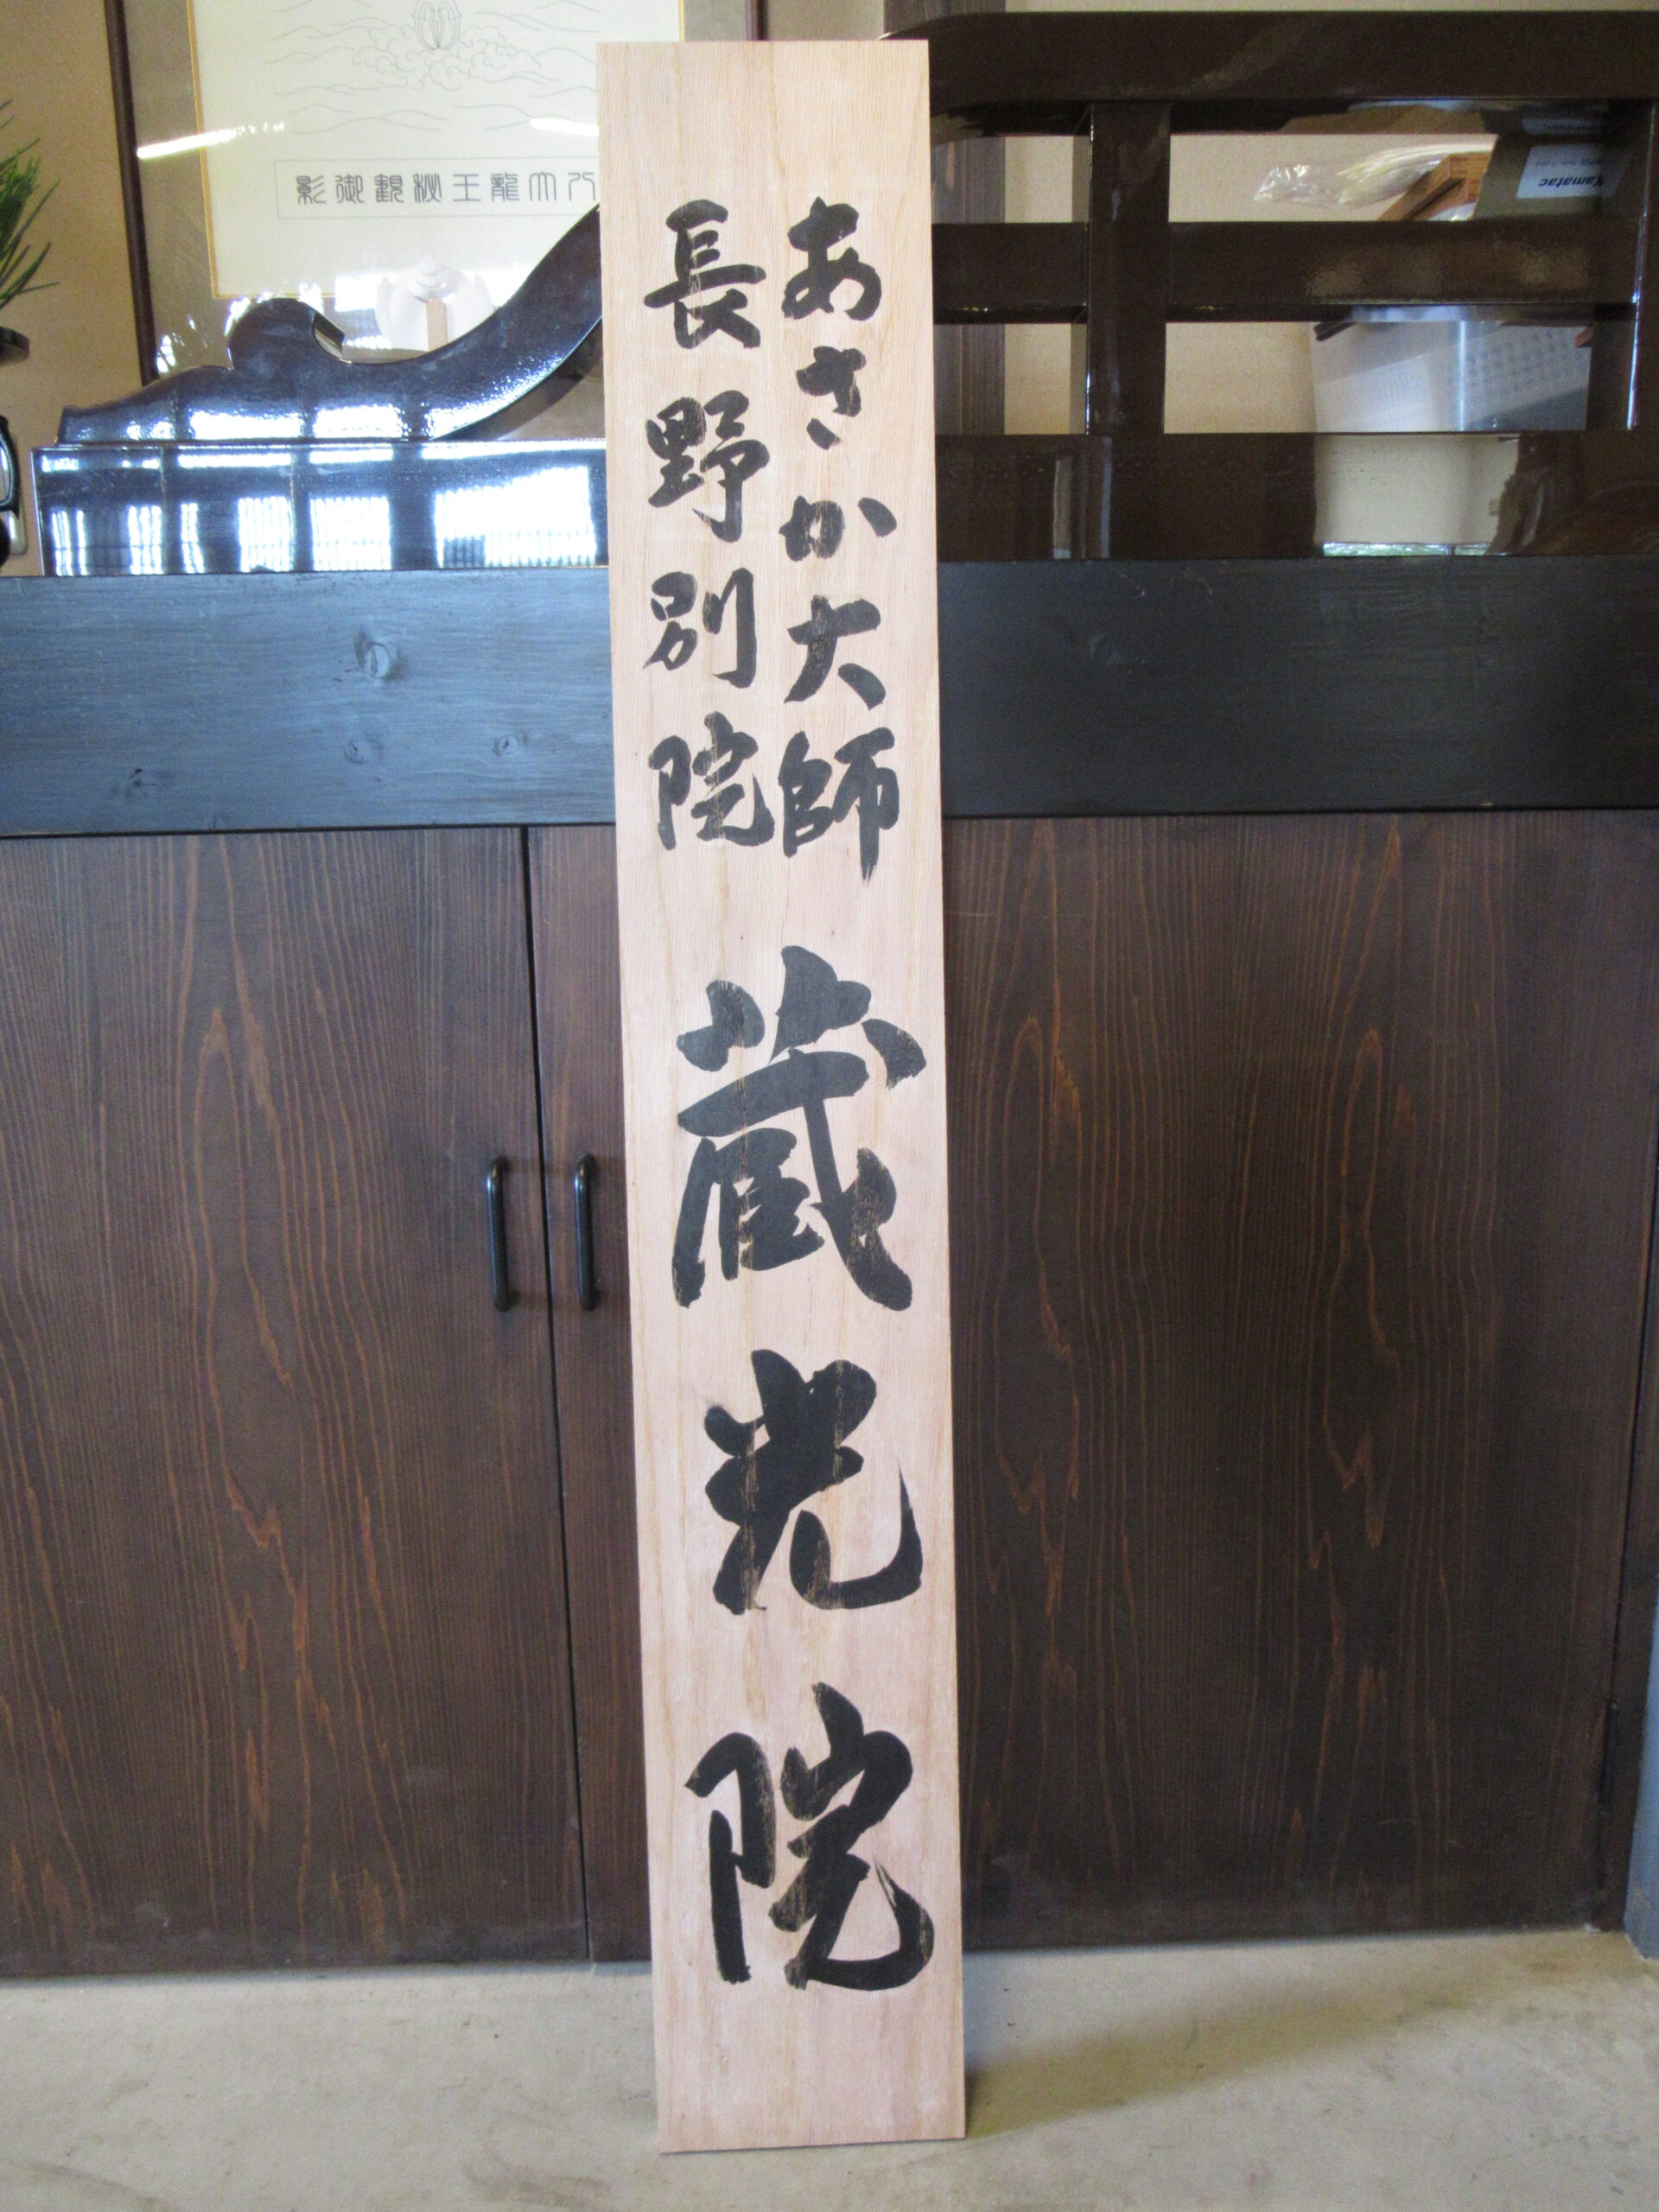 あさか大師
長野別院
蔵光院
影御観秘王龍大八
Kamatac